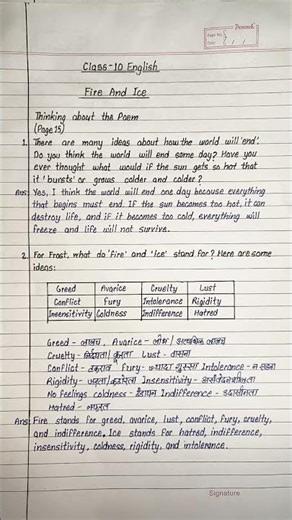 Page No.
Date
Class-10 English
Fire And Ice
Thinking about the Poem
(Page 15)
1. There are many ideas about how the world will 'end'.
Do you think the world will end some day? Have you
ever thought what would if the sun gets so hot that
it 'bursts' or grows colder and colder?
Ans: Yes, I think the world will end one day because everything
that begins must end. If the sun becomes too hot, it can
destroy life, and if it becomes too cold, everything will
freeze and life will not survive.
2. For Frost, what do 'fire' and 'ice' stand for? Here are some
ideas:
Greed Avarice Cruelty Lust
Conflict Fury Intolerance Rigidity
Insensitivity Coldness Indifference Hatred
Greed - लालच, Avarice - लोभ/ अत्यधिक लालच
Cruelty - निर्दयता/ क्रूरता Lust - वासना
Conflict - टकराव Fury - ज्यादा गुस्सा Intolerance - न सहना
Rigidity - जड़ता/कठोरता Insensitivity - असंवेदनशीलता
No feelings coldness - ठंडापन Indifference - उदासीनता
Hatred - नफरत
Ans: Fire stands for greed, avarice, lust, conflict, fury, cruelty,
and indifference. Ice stands for hatred, indifference,
insensitivity, coldness, rigidity, and intolerance.
Signature